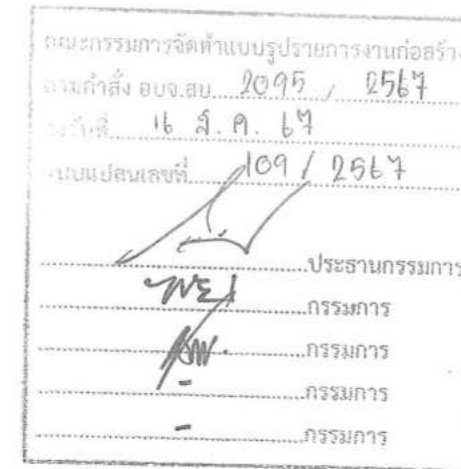 คณะกรรมการจัดทำแบบรูปรายการงานก่อสร้าง
ตามคำสั่ง อบจ.สบ. 2095 / 2567
ลงวันที่ 16 ส.ค. 67
แบบแปลนเลขที่ 109 / 2567
ประธานกรรมการ
กรรมการ
กรรมการ
- กรรมการ
- กรรมการ